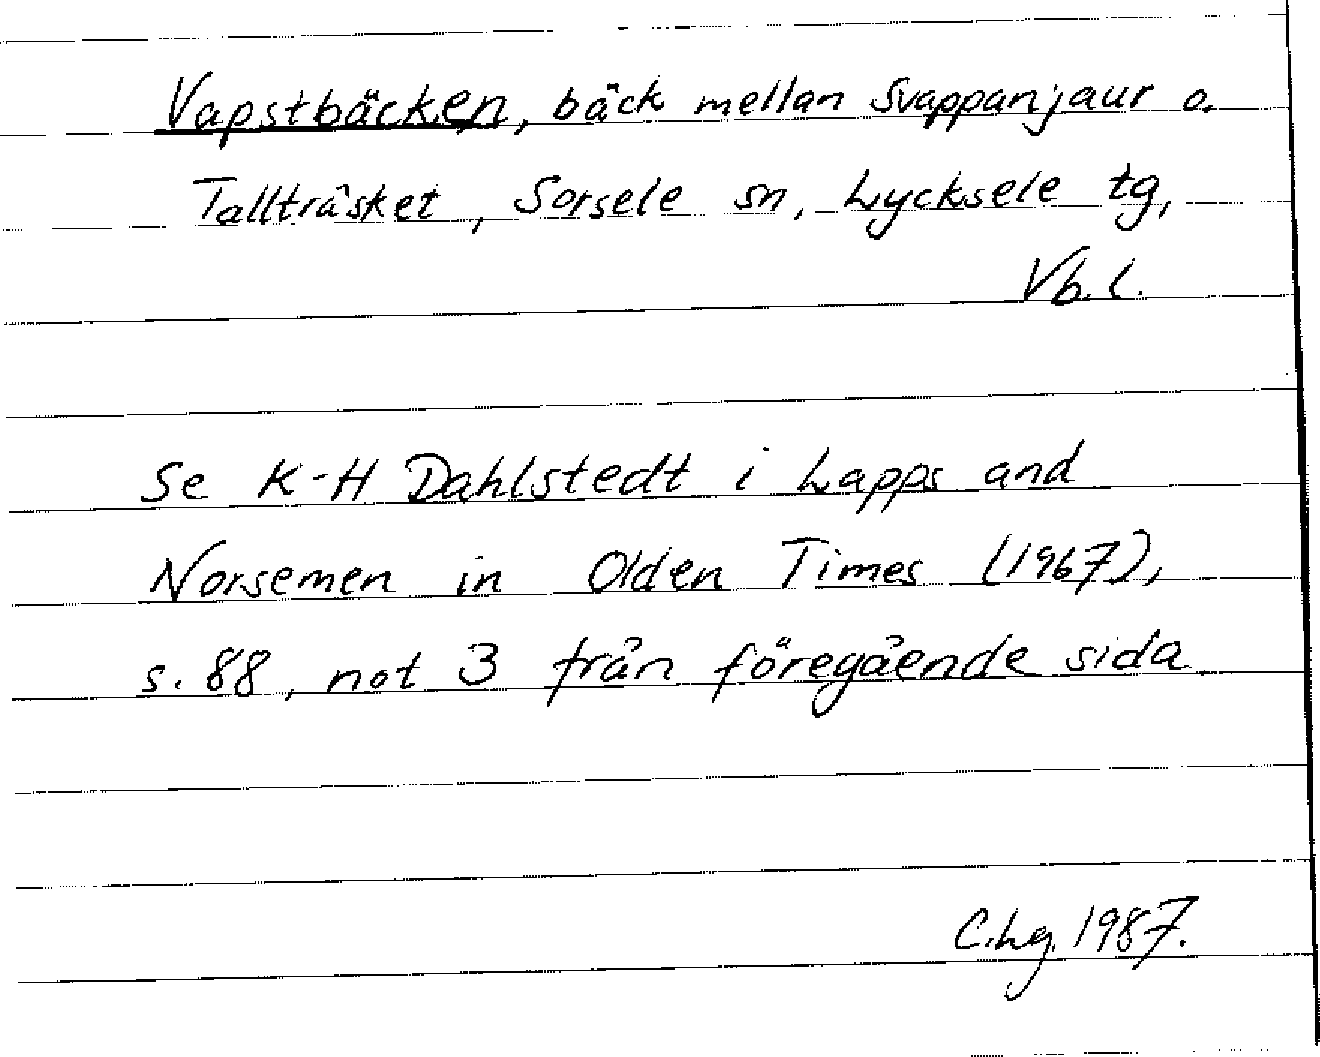 Vapstbäcken, bäck mellan Svappanjaur o.
Tallträsket, Sorsele sn, Lycksele tg,
Vb. l.
Se K-H Dahlstedt i Lapps and
Norsemen in Olden Times (1967),
s. 88, not 3 från föregående sida
C.Lg. 1987.